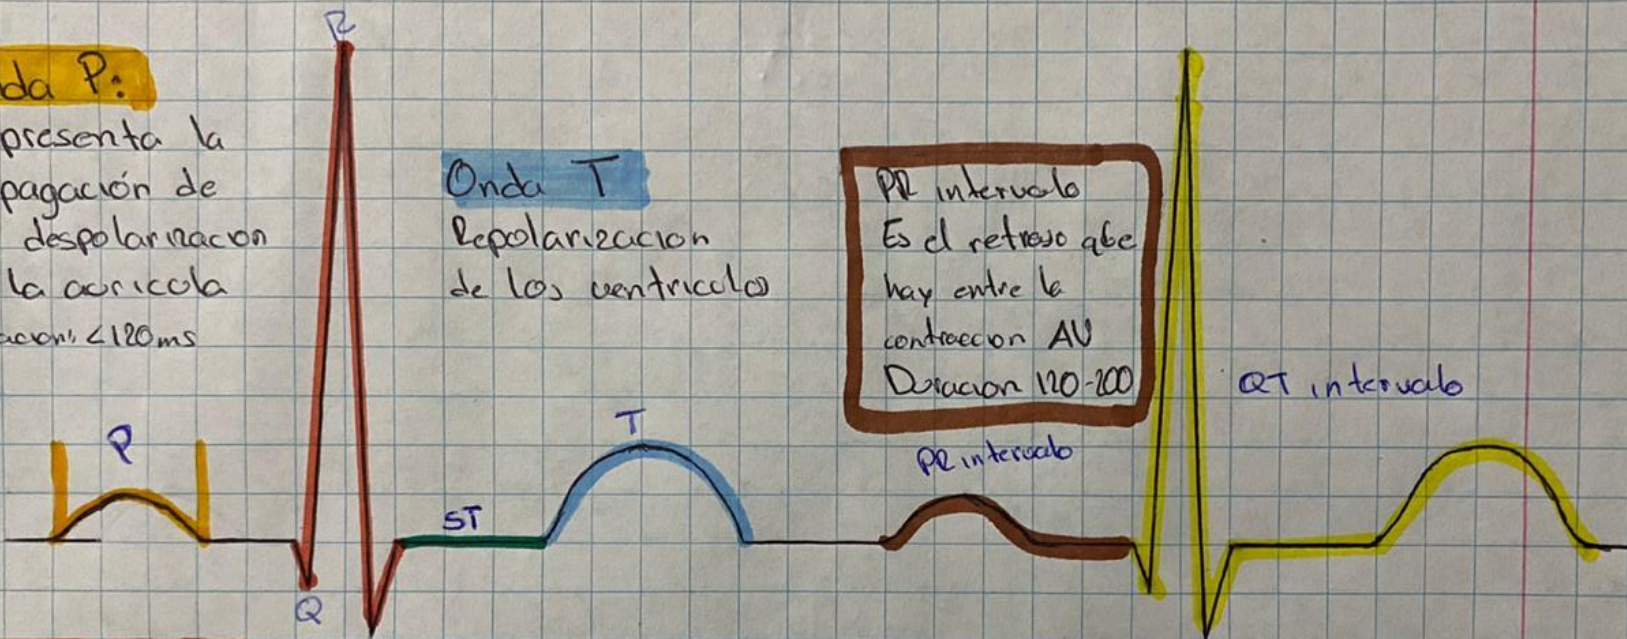 R
da P:
presenta la
pagación de
despolarizacion
la auricula
acion: <120ms
P
Q
ST
Onda T
Repolarizacion
de los ventriculos
T
PR intervalo
Es el retraso que
hay entre la
contraccion AV
Duracion 120-200
PR intervalo
QT intervalo